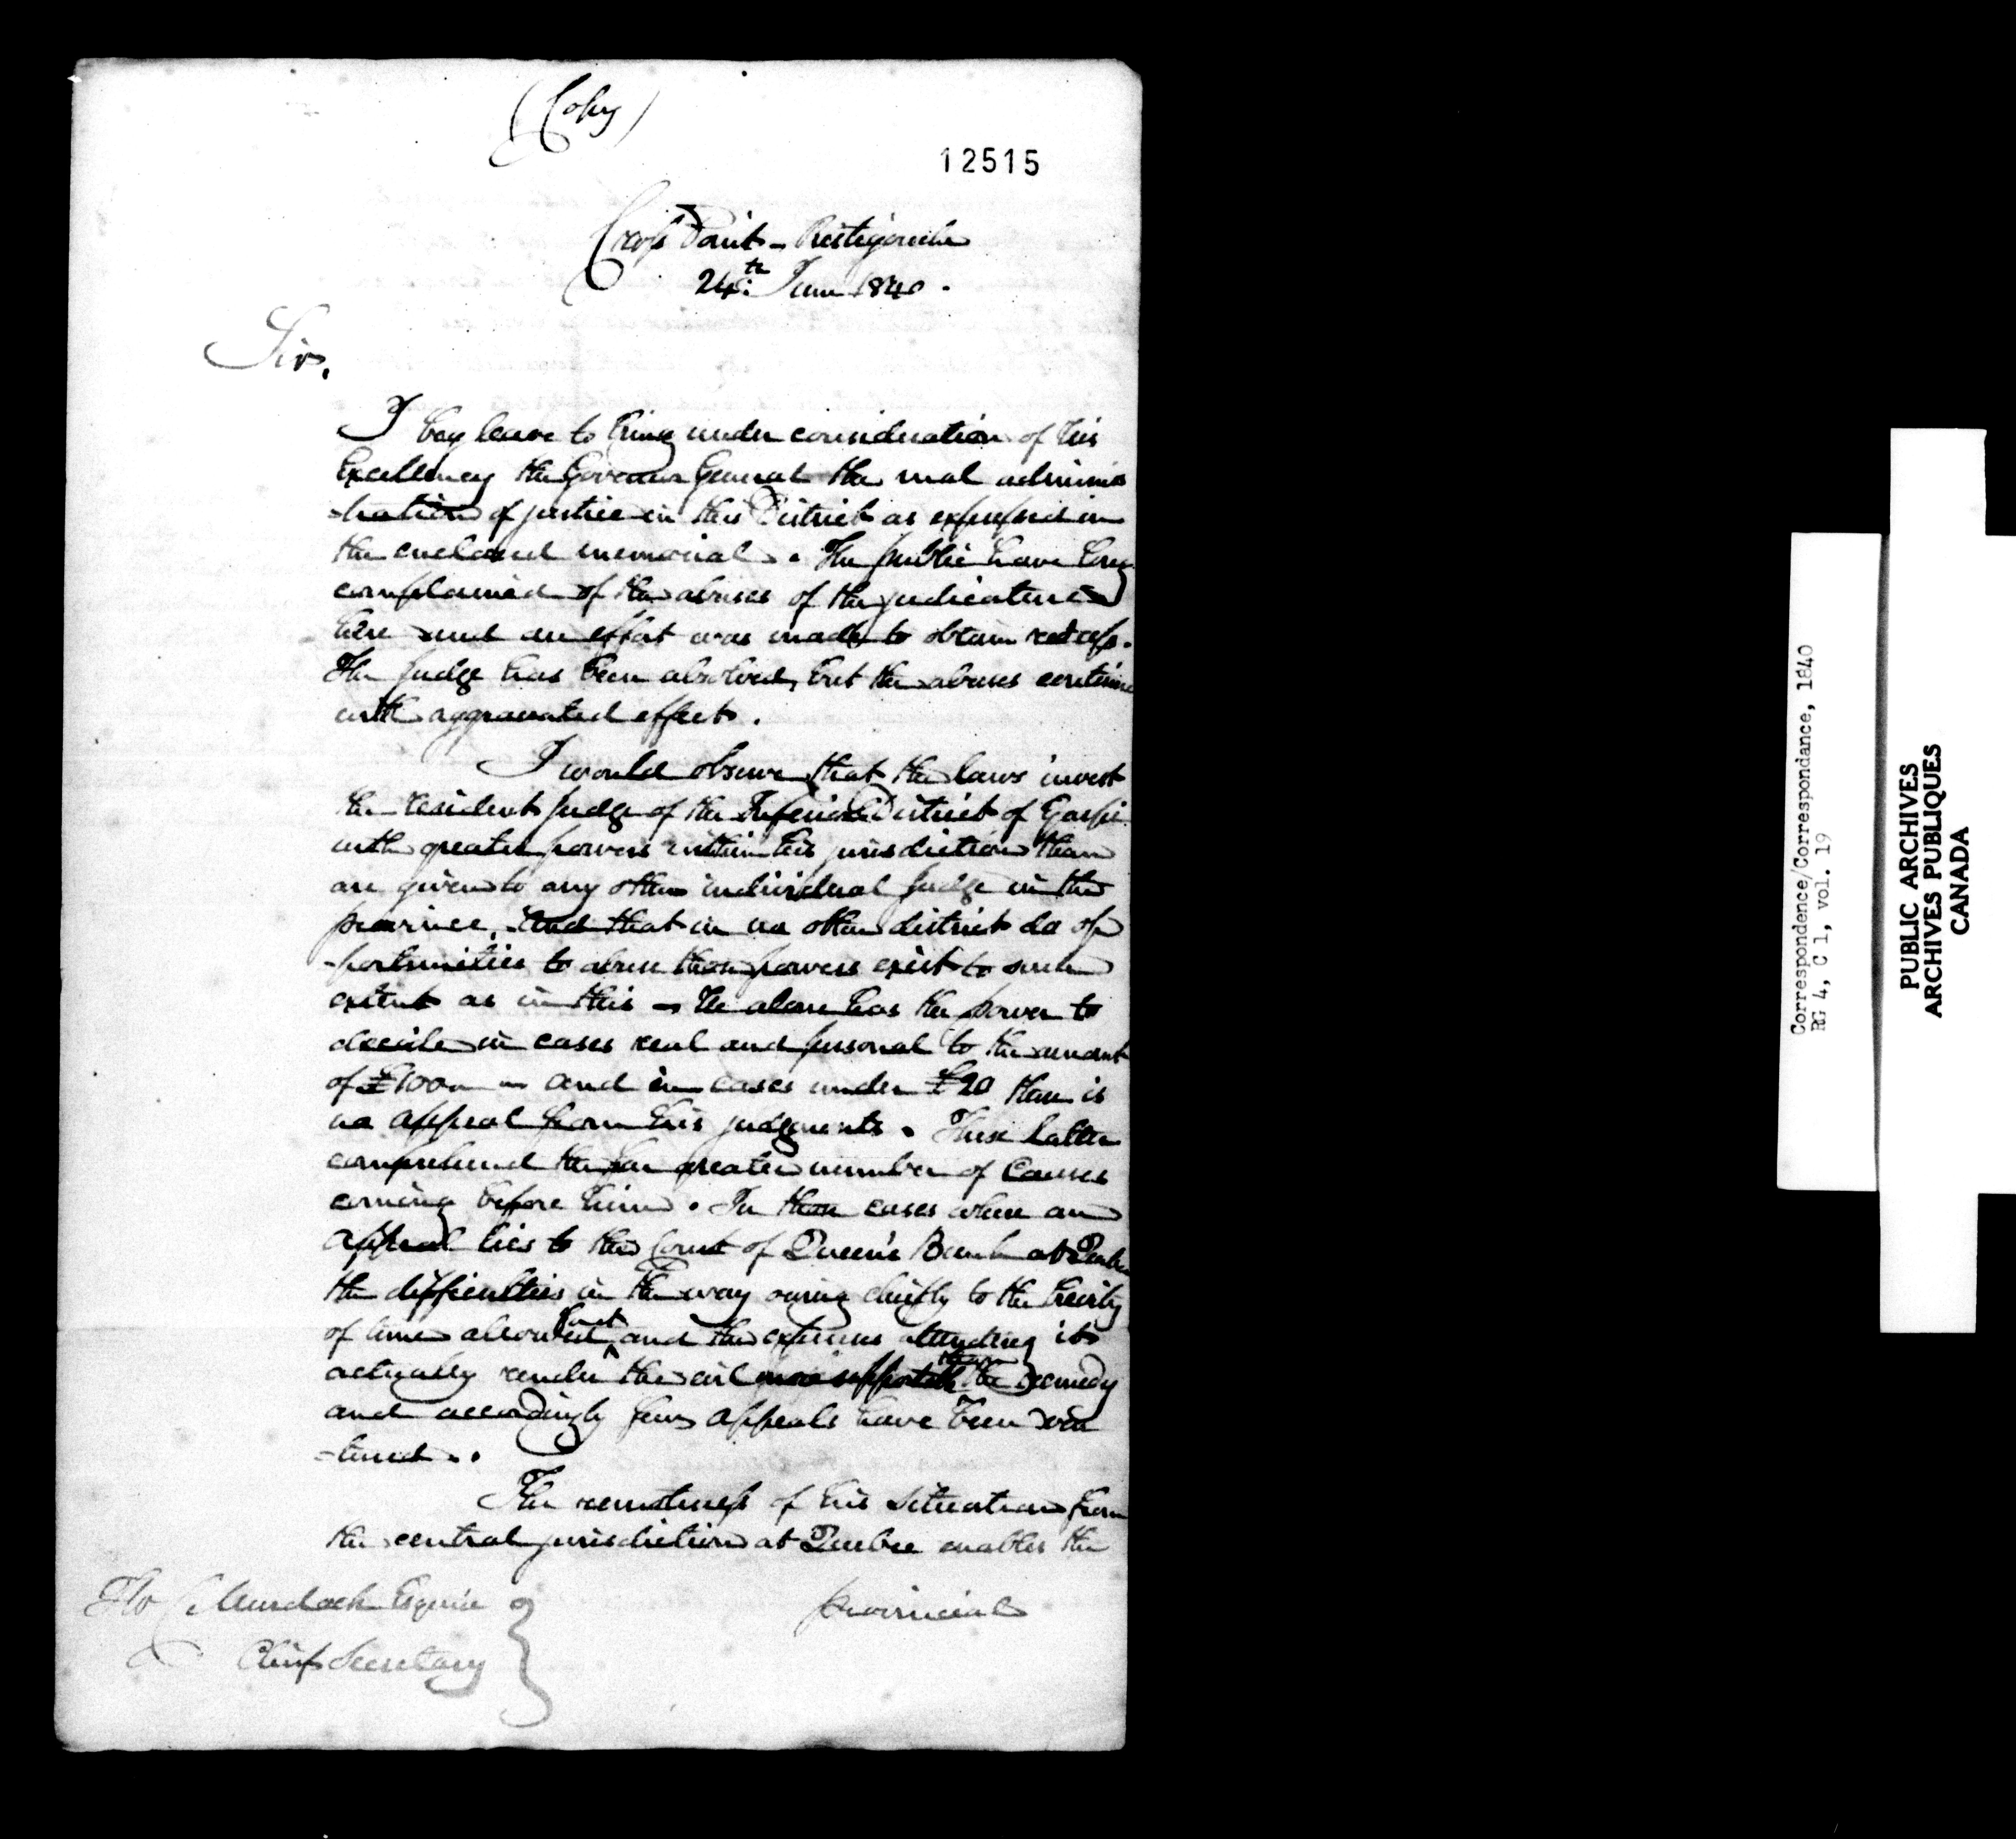 (Copy)
12515
Cross Point - Ristigouche
24th June 1840.
Sir,
I beg leave to bring under consideration of His
Excellency the Governor General the mal adminis
-tration of justice in this District as expressed in
the enclosed memorial. The public have long
complained of the abuses of the judicature
here and an effort was made to obtain redress.
The Judge has been absolved, but the abuses continue
with aggravated effect.
I would observe that the laws invest
the resident Judge of the Inferior District of Gaspé
with greater powers within his jurisdiction than
are given to any other individual Judge in the
province, and that in no other district do op
-portunities to abuse those powers exist to such
extent as in this - He alone has the power to
decide in cases real and personal to the amount
of £100 - and in cases under £20 there is
no appeal from his judgments. These latter
comprehend the far greater number of Causes
coming before him. In those cases where an
appeal lies to the Court of Queen's Bench at Quebec
the difficulties in the way owing chiefly to the brevity
of time allowed and the expenses attending it
actually render the evil more supportable than the remedy
and accordingly few appeals have been ven
-tured.
The remoteness of his situation from
the central jurisdiction at Quebec enables the
provincial
Murdoch Esquire
Chief Secretary
Correspondence/Correspondance, 1840
RG 4, C 1, vol. 19
PUBLIC ARCHIVES
ARCHIVES PUBLIQUES
CANADA